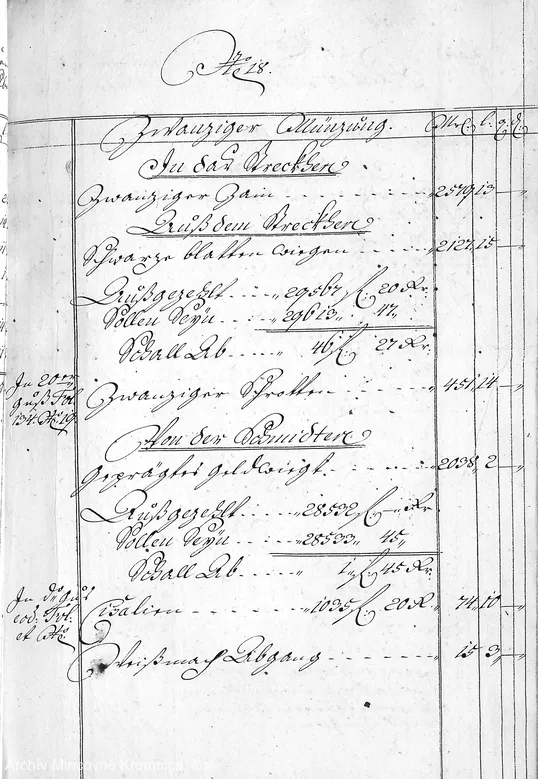 No 18.
Zwanziger Münzung. Mr. l. q. d.
In das Streckhen
Zwanziger Zain - - - - - 2579, 13 —
Auß dem Streckhen
Schwarze blatten wiegen - - - - 2127, 15 —
Außgezehlt - - - - 29567 f: 20 Kr:
Sollen Seyn - - - 29613 „ 47 „
Schall Ab - - - - 46 f: 27 Kr:
In 20er
guß Fol:
134. No 19.
Zwanziger Schrotten - - - - - 451, 14 —
Von der Schmidten
Geprägtes Geld wiegt - - - - - 2038, 2 —
Außgezehlt - - - - 28532 f: — Kr:
Sollen Seyn - - - 28533 „ 45 „
Schall Ab - - - - 1 f: 45 Kr:
In
eod: Fol:
et No
Cisalien - - - - - - 1035 f: 20 K: 74, 10 —
Weißmach Abgang - - - - - - - 15, 3 —
Archiv Mincovne Kremnica